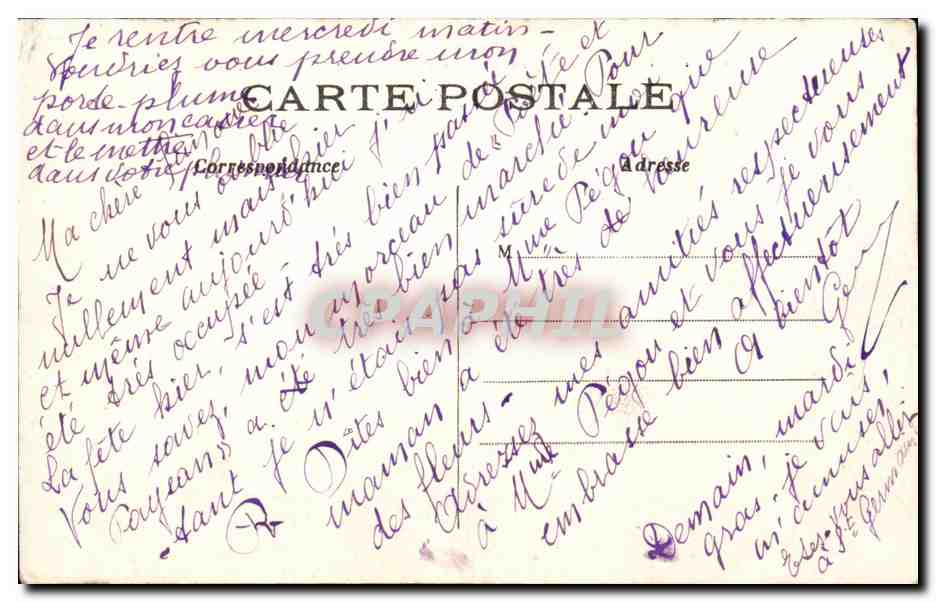 Je rentre mercredi matin -
Voudriez vous prendre mon
porde-plume
dans mon casier
et le mettre
dans votre
CARTE POSTALE
Correspondance
Adresse
M
Ma chère
Je ne vous oublie
nullement mais hier
et même aujourd'hui j'ai
été très occupée -
La fête hier, s'est très bien passée
Vous savez, mon morceau de "Poète et
Paysan" a été très bien marché. Pour
-tant je n'étais pas sûre de moi
Dîtes bien à Mme Pégou que
maman a de très de
des fleurs -
Adressez mes amitiés respectueuses
à Mme Pégou et vous je vous
embrasse bien affectueusement
A bientôt
Demain, mardi
gras - je vais,
m'amuser,
Etes-vous allé
à St Germain
CPAPHIL